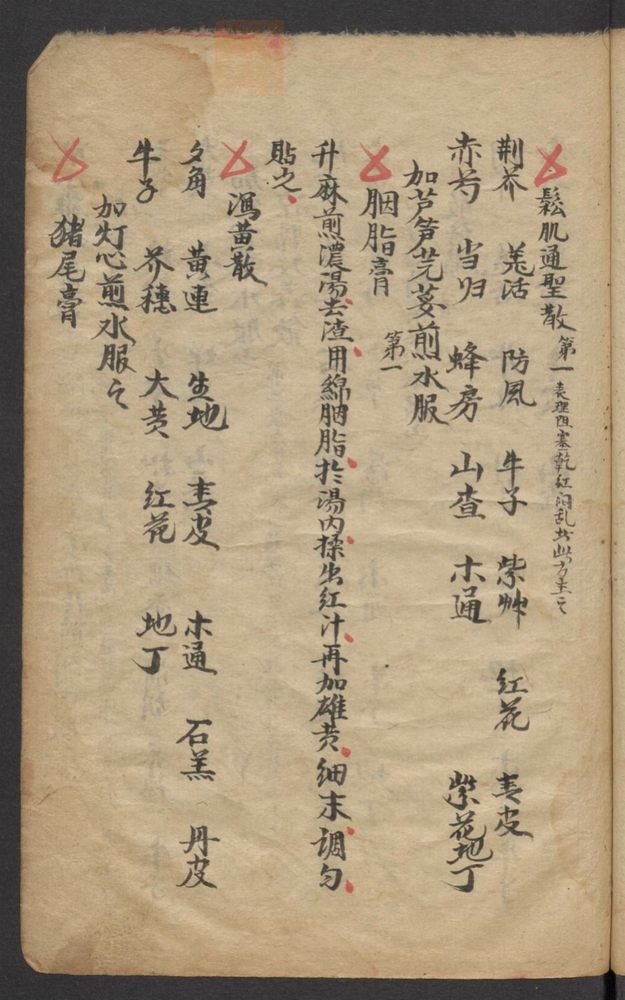 鬆肌通聖散 第一 表裡阻塞乾紅悶乱者此方主之
荆芥 羌活 防風 牛子 紫艸 红花 青皮
赤芍 当归 蜂房 山查 木通 紫花地丁
加芦笋芫荽煎水服
胭脂膏 第一
升麻煎濃湯去渣用綿胭脂扵湯内揉出红汁再加雄黄细末調匀
貼之
瀉黄散
夕角 黄連 生地 青皮 木通 石羔 丹皮
牛子 芥穗 大黄 红花 地丁
加灯心煎水服之
猪尾膏